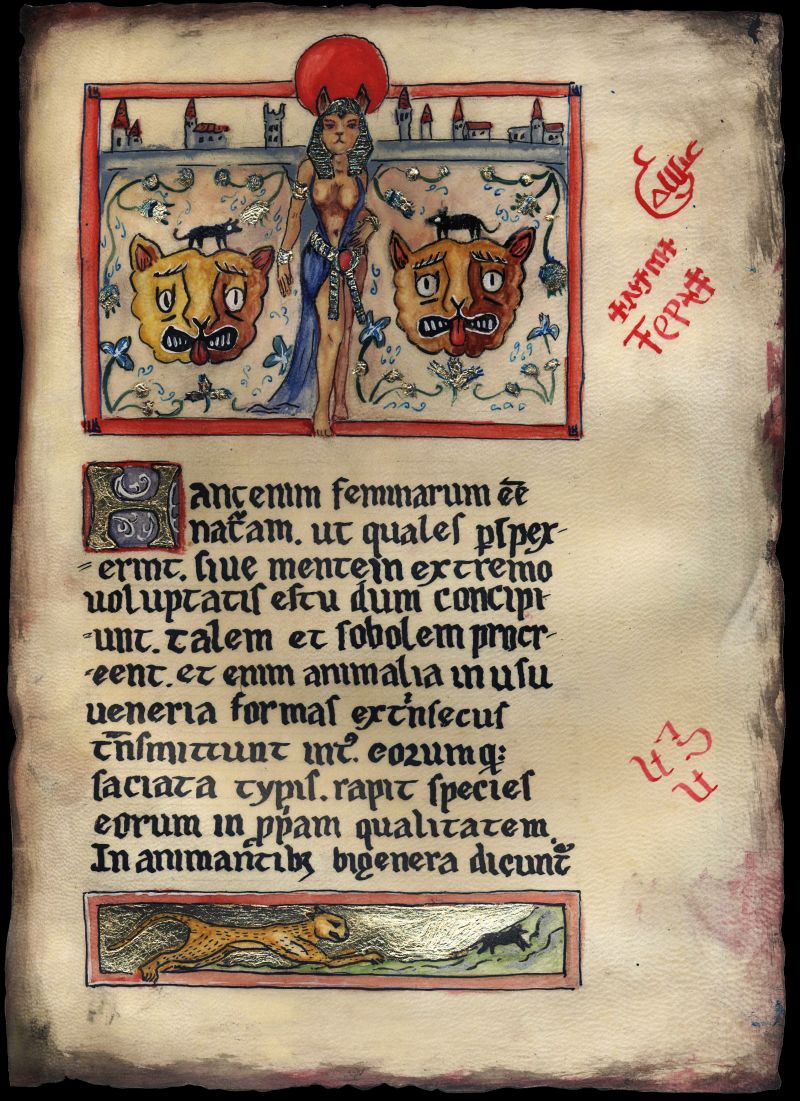 Hanc enim feminarum eē
nat̄am. ut quales ꝑspex-
-erint. siue mente in extremo
uoluptatis estu dum concipi
-unt. talem et sobolem procr-
-eent. et enim animalia in usu
ueneria formas ext'nsecus
t̄nsmittunt intꝰ. eorumq:
saciata typis. rapit species
eorum in ꝓp̄am qualitatem.
In animantibꝫ bigenera dicunt᷑